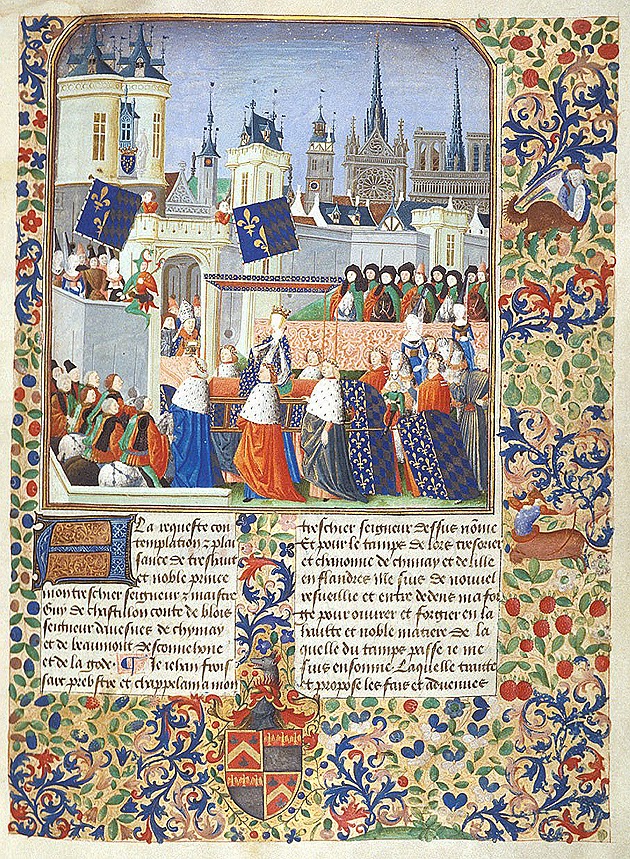 A La requeste con
templation z plai
sance de treshault
et noble prince
mon treschier seigneur z maistre
Guy de chastillon conte de blois
seigneur davesnes de chymay
et de beaumont descouehove
et de la gode. Je Jehan frois
sart prebstre et chappelain a mon
treschier seigneur dessus nome
Et pour le temps de lors tresorier
et chanonne de chimay et de lille
en flandres me suis de nouvel
resueillie et entre dedens ma for
ge pour ouvrer et forgier en la
haulte et noble matiere de la
quelle du temps passe ie me
suis ensonnie. Laquelle traitte
et propose les fais et advenues